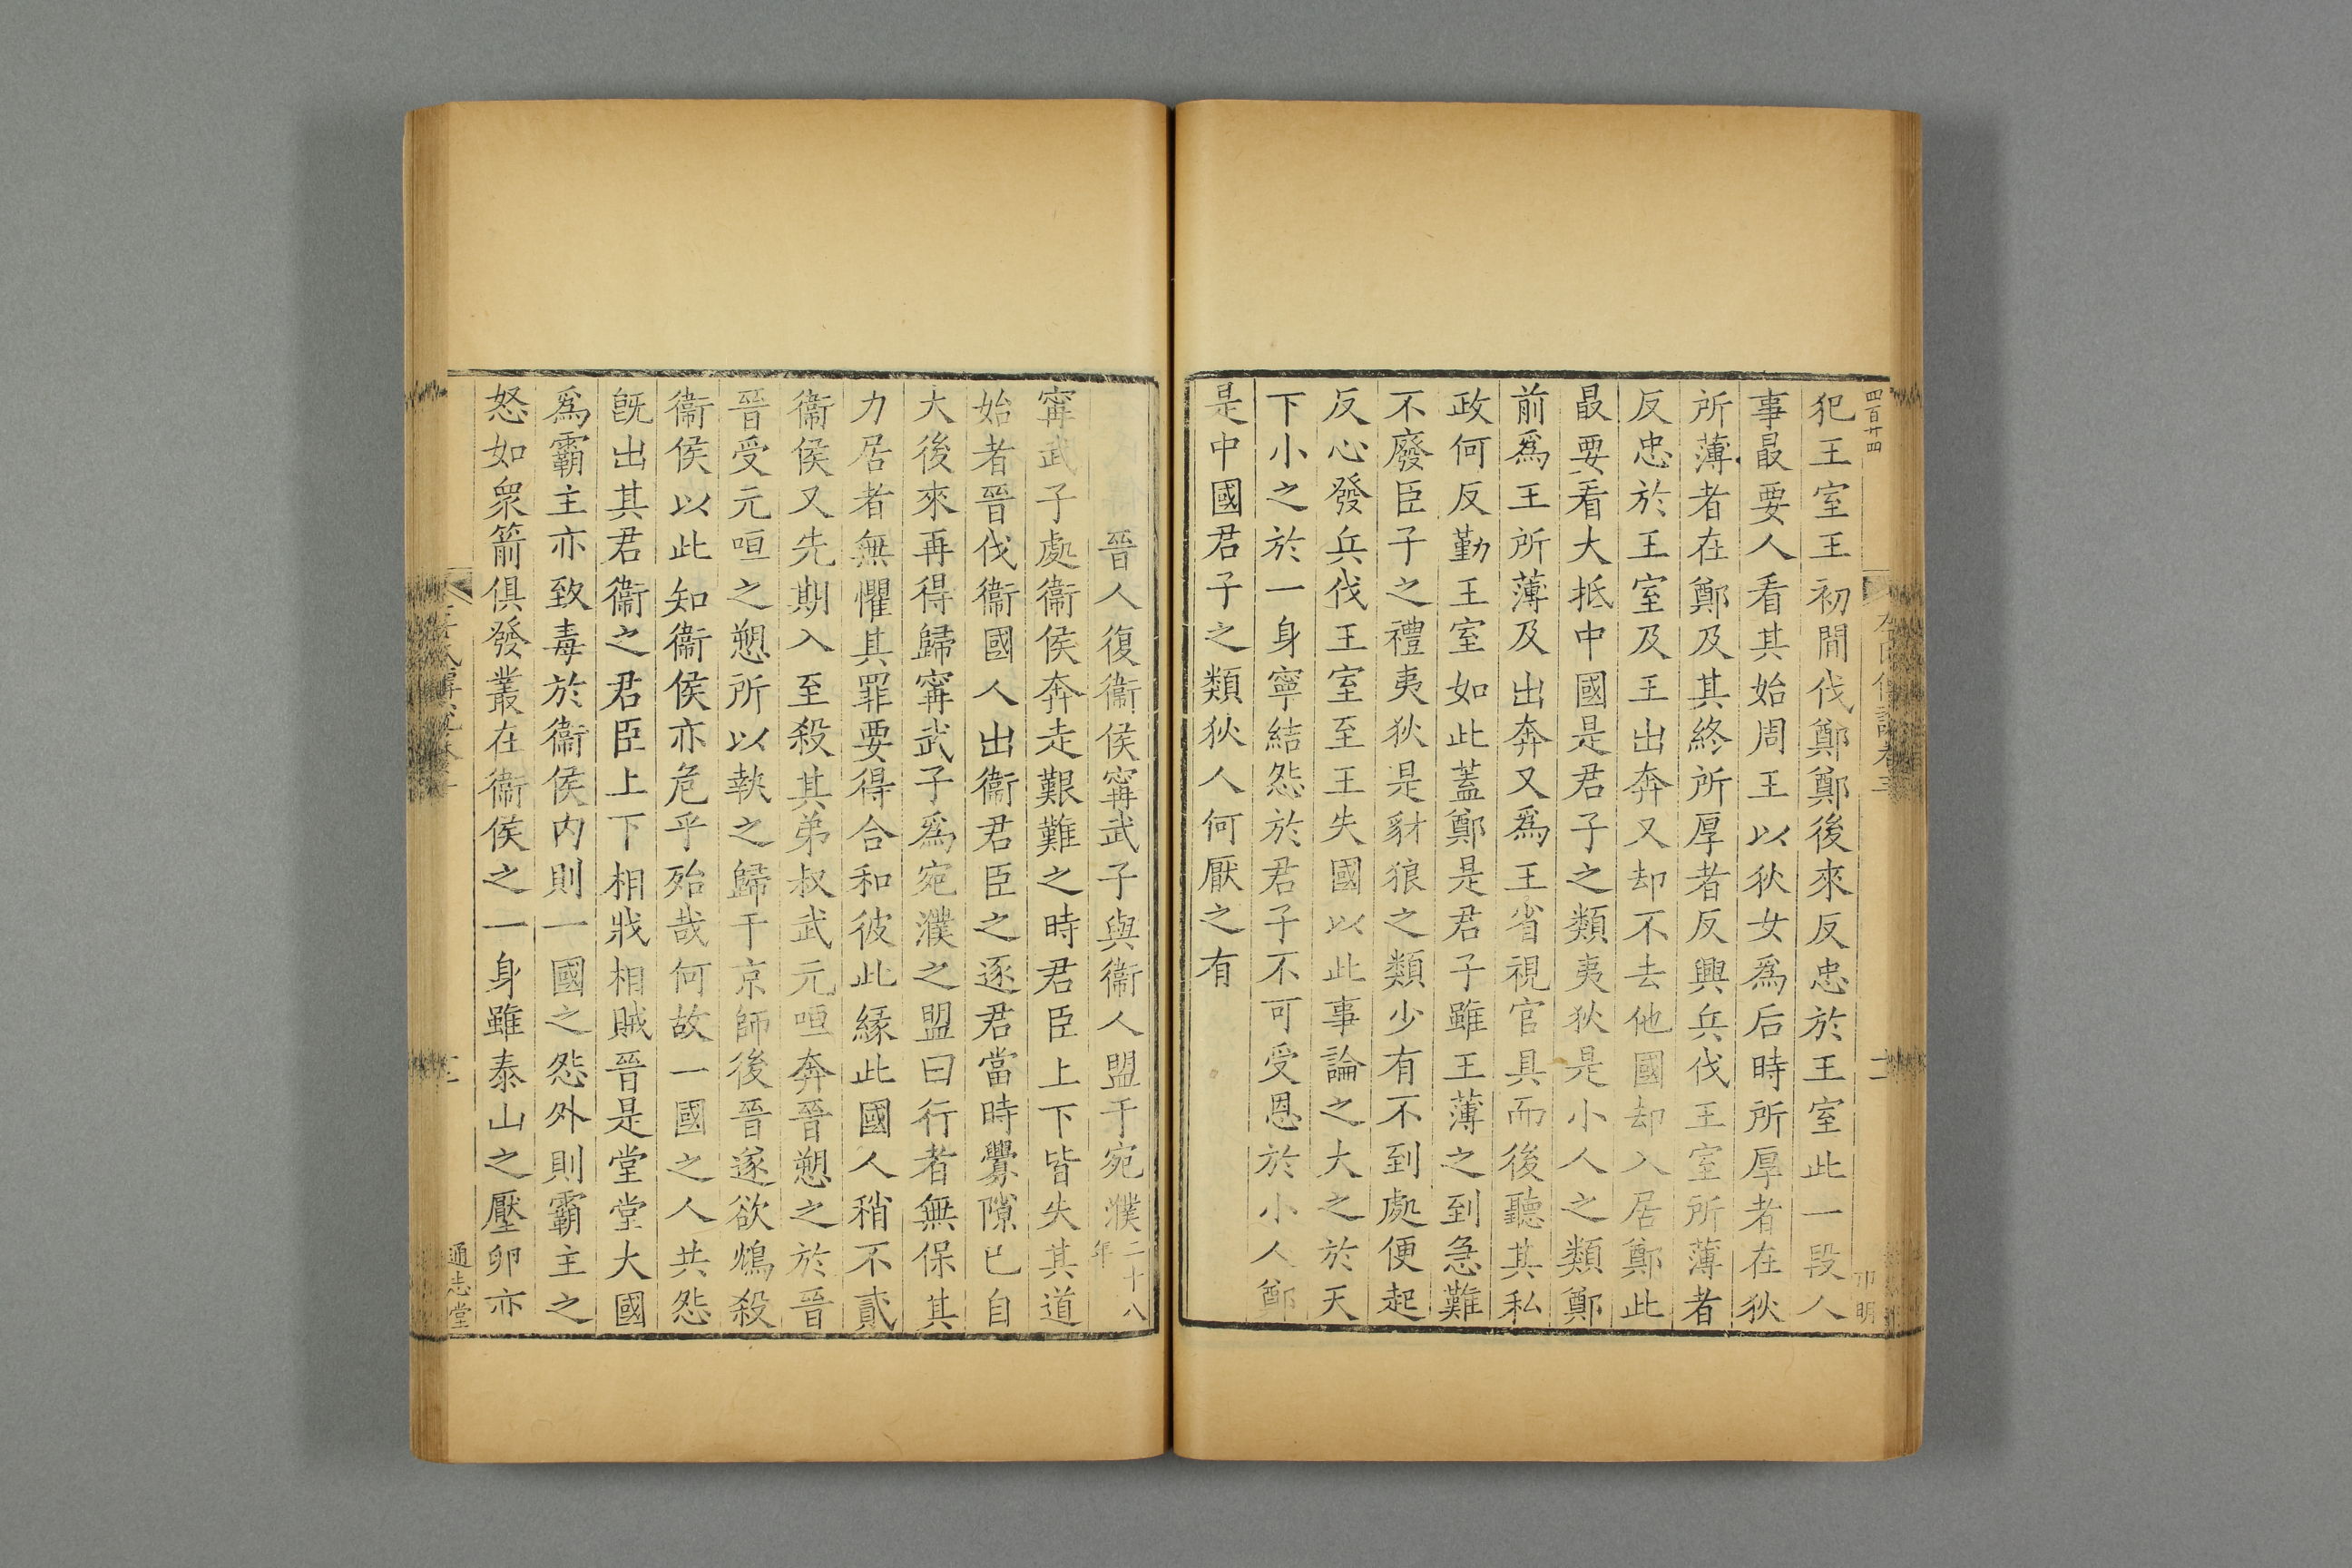 四百廿四
犯王室王初間伐鄭鄭後來反忠於王室此一段人
事最要人看其始周王以狄女爲后時所厚者在狄
所薄者在鄭及其終所厚者反興兵伐王室所薄者
反忠於王室及王出奔又却不去他國却入居鄭此
最要看大抵中國是君子之類夷狄是小人之類鄭
前爲王所薄及出奔又爲王省視官具而後聽其私
政何反勤王室如此蓋鄭是君子雖王薄之到急難
不廢臣子之禮夷狄是豺狼之類少有不到處便起
反心發兵伐王室至王失國以此事論之大之於天
下小之於一身寧結怨於君子不可受恩於小人鄭
是中國君子之類狄人何厭之有
晉人復衞侯甯武子與衞人盟于宛濮二十八年
甯武子處衞侯奔走艱難之時君臣上下皆失其道
始者晉伐衞國人出衞君臣之逐君當時釁隙已自
大後來再得歸甯武子爲宛濮之盟曰行者無保其
力居者無懼其罪要得合和彼此緣此國人稍不貳
衞侯又先期入至殺其弟叔武元咺奔晉愬之於晉
晉受元咺之愬所以執之歸于京師後晉遂欲鴆殺
衞侯以此知衞侯亦危乎殆哉何故一國之人共怨
旣出其君衞之君臣上下相戕相賊晉是堂堂大國
爲霸主亦致毒於衞侯内則一國之怨外則霸主之
怒如衆箭俱發叢在衞侯之一身雖泰山之壓卵亦
通志堂